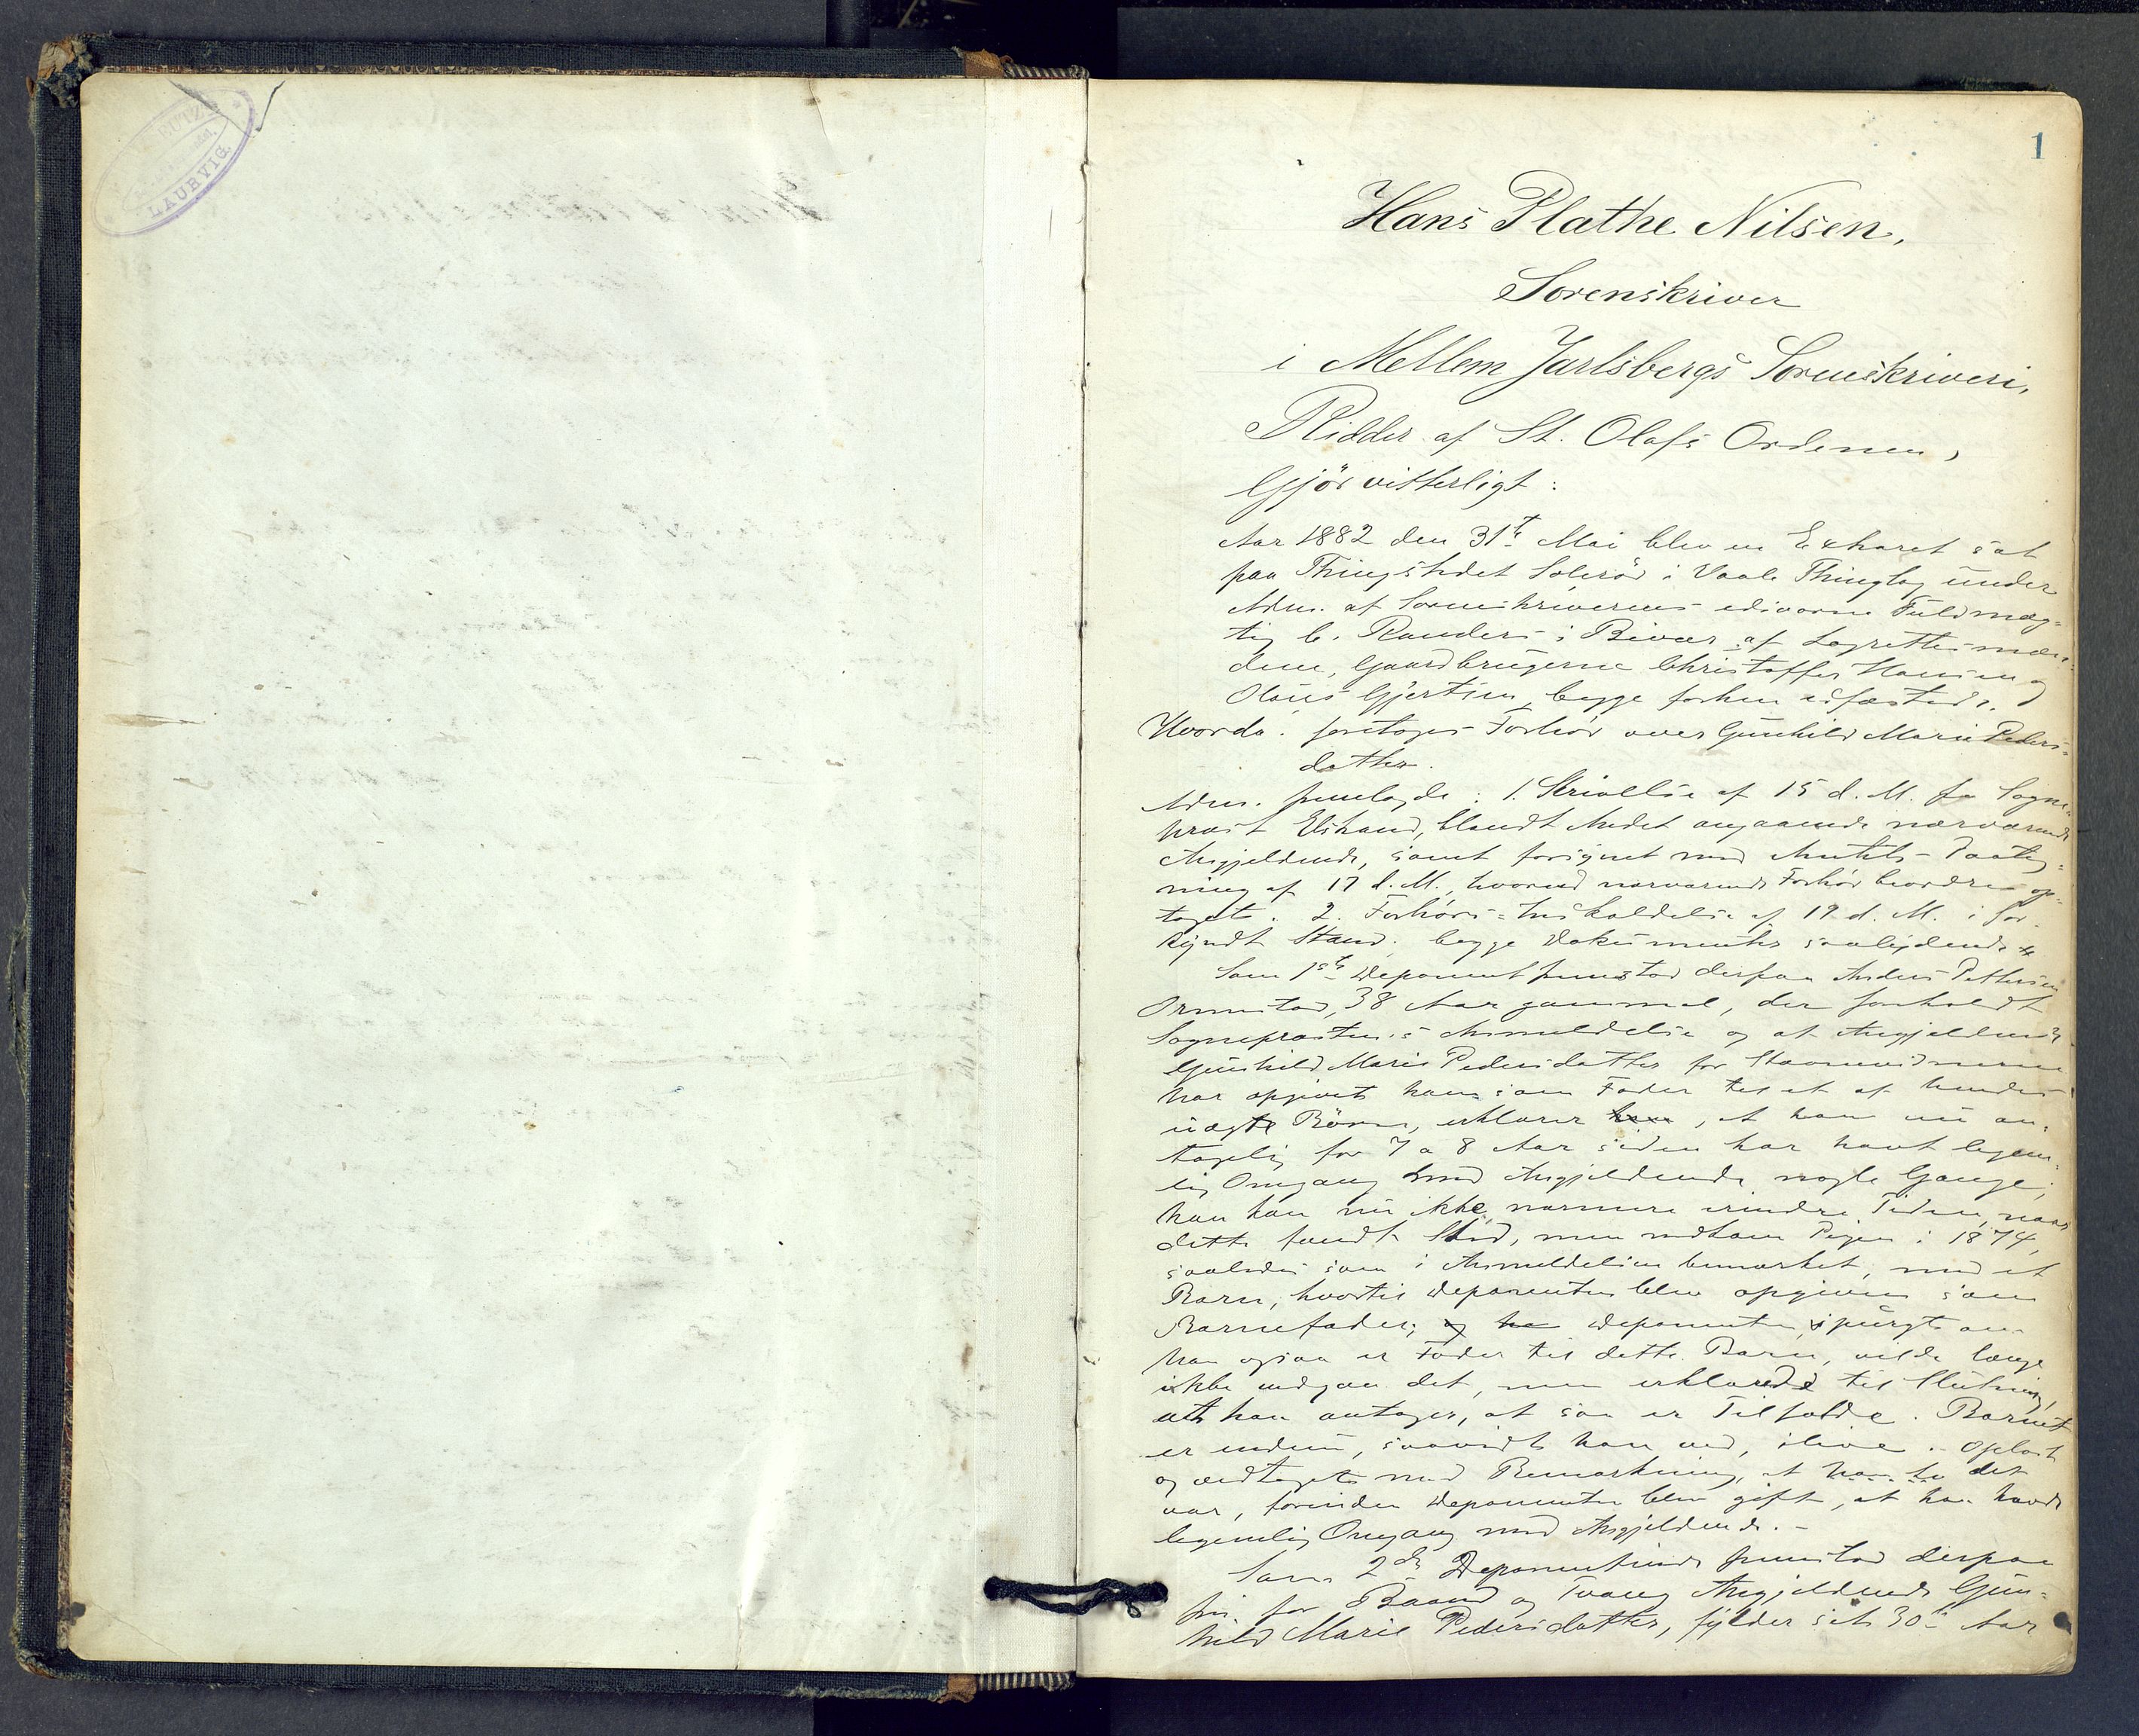 LAURVIG.
1
Hans Plathe Nilsen,
Sorenskriver
i Mellem Jarlsbergs Sorenskriveri,
Ridder af St. Olafs Ordenen,
Gjör vitterligt:
Aar 1882 den 31te Mai blev en Extraret sat
paa Thingstedet Solerød i Vaale Thinglag under
Adm. af Sorenskriverens edsvorne Fuldmæg-
tig C. Randers i Bivær af Lagrettesmæn-
dene, Gaardbrugerne Christoffer Hansen og
Olaus Gjertsen, begge forhen edfæstede.
Hvorda: foretoges Forhör over Gunhild Marie Peders-
datter.
Adm. fremlagde: 1. Skrivelse af 15 d. M. fra Sogne-
præst Elstrand, blandt Andet angaaende nærværende
Angjeldende, samt forsynet med Amtets Paateg-
ning af 17 d. M., hvorved nærværende Forhör beordres op-
taget. 2. Forhörs-Indkaldelse af 19 d. M. i for-
kyndt Stand; begge Dokumenter saalydende
Som 1ste Deponent fremstod derpaa Anders Pettersen
Ormestad, 38 Aar gammel, der foreholdt
Sognepræstens Anmeldelse og at Angjeldende
Gunhild Marie Pedersdatter for Stevnevidnerne
har opgivet ham som Fader til et af hendes
uægte Börn, erklærer han, at han nu an-
tagelig for 7 a 8 Aar siden har havt legem-
lig Omgang med Angjeldende nogle Gange;
han kan nu ikke nærmere erindre Tiden, naar
dette fandt Sted, men nedkom Pigen i 1874,
saaledes som i Anmeldelsen bemærket, med et
Barn, hvortil Deponenten blev opgiven som
Barnefader; og han Deponenten, spurgt om
han ogsaa er Fader til dette Barn, vilde længe
ikke vedgaa det, men erklærede til Slutning,
at han antager, at saa er Tilfælde. Barnet
er endnu, saavidt han ved, ilive. Oplæst
og vedtaget med Bemærkning, at det
var, forinden Deponenten blev gift, at han havde
legemlig Omgang med Angjeldende. -
Som 2den Deponentinde fremstod derpaa
fri for Baand og Tvang Angjeldende Gun-
hild Marie Pedersdatter, fylder sit 30te Aar